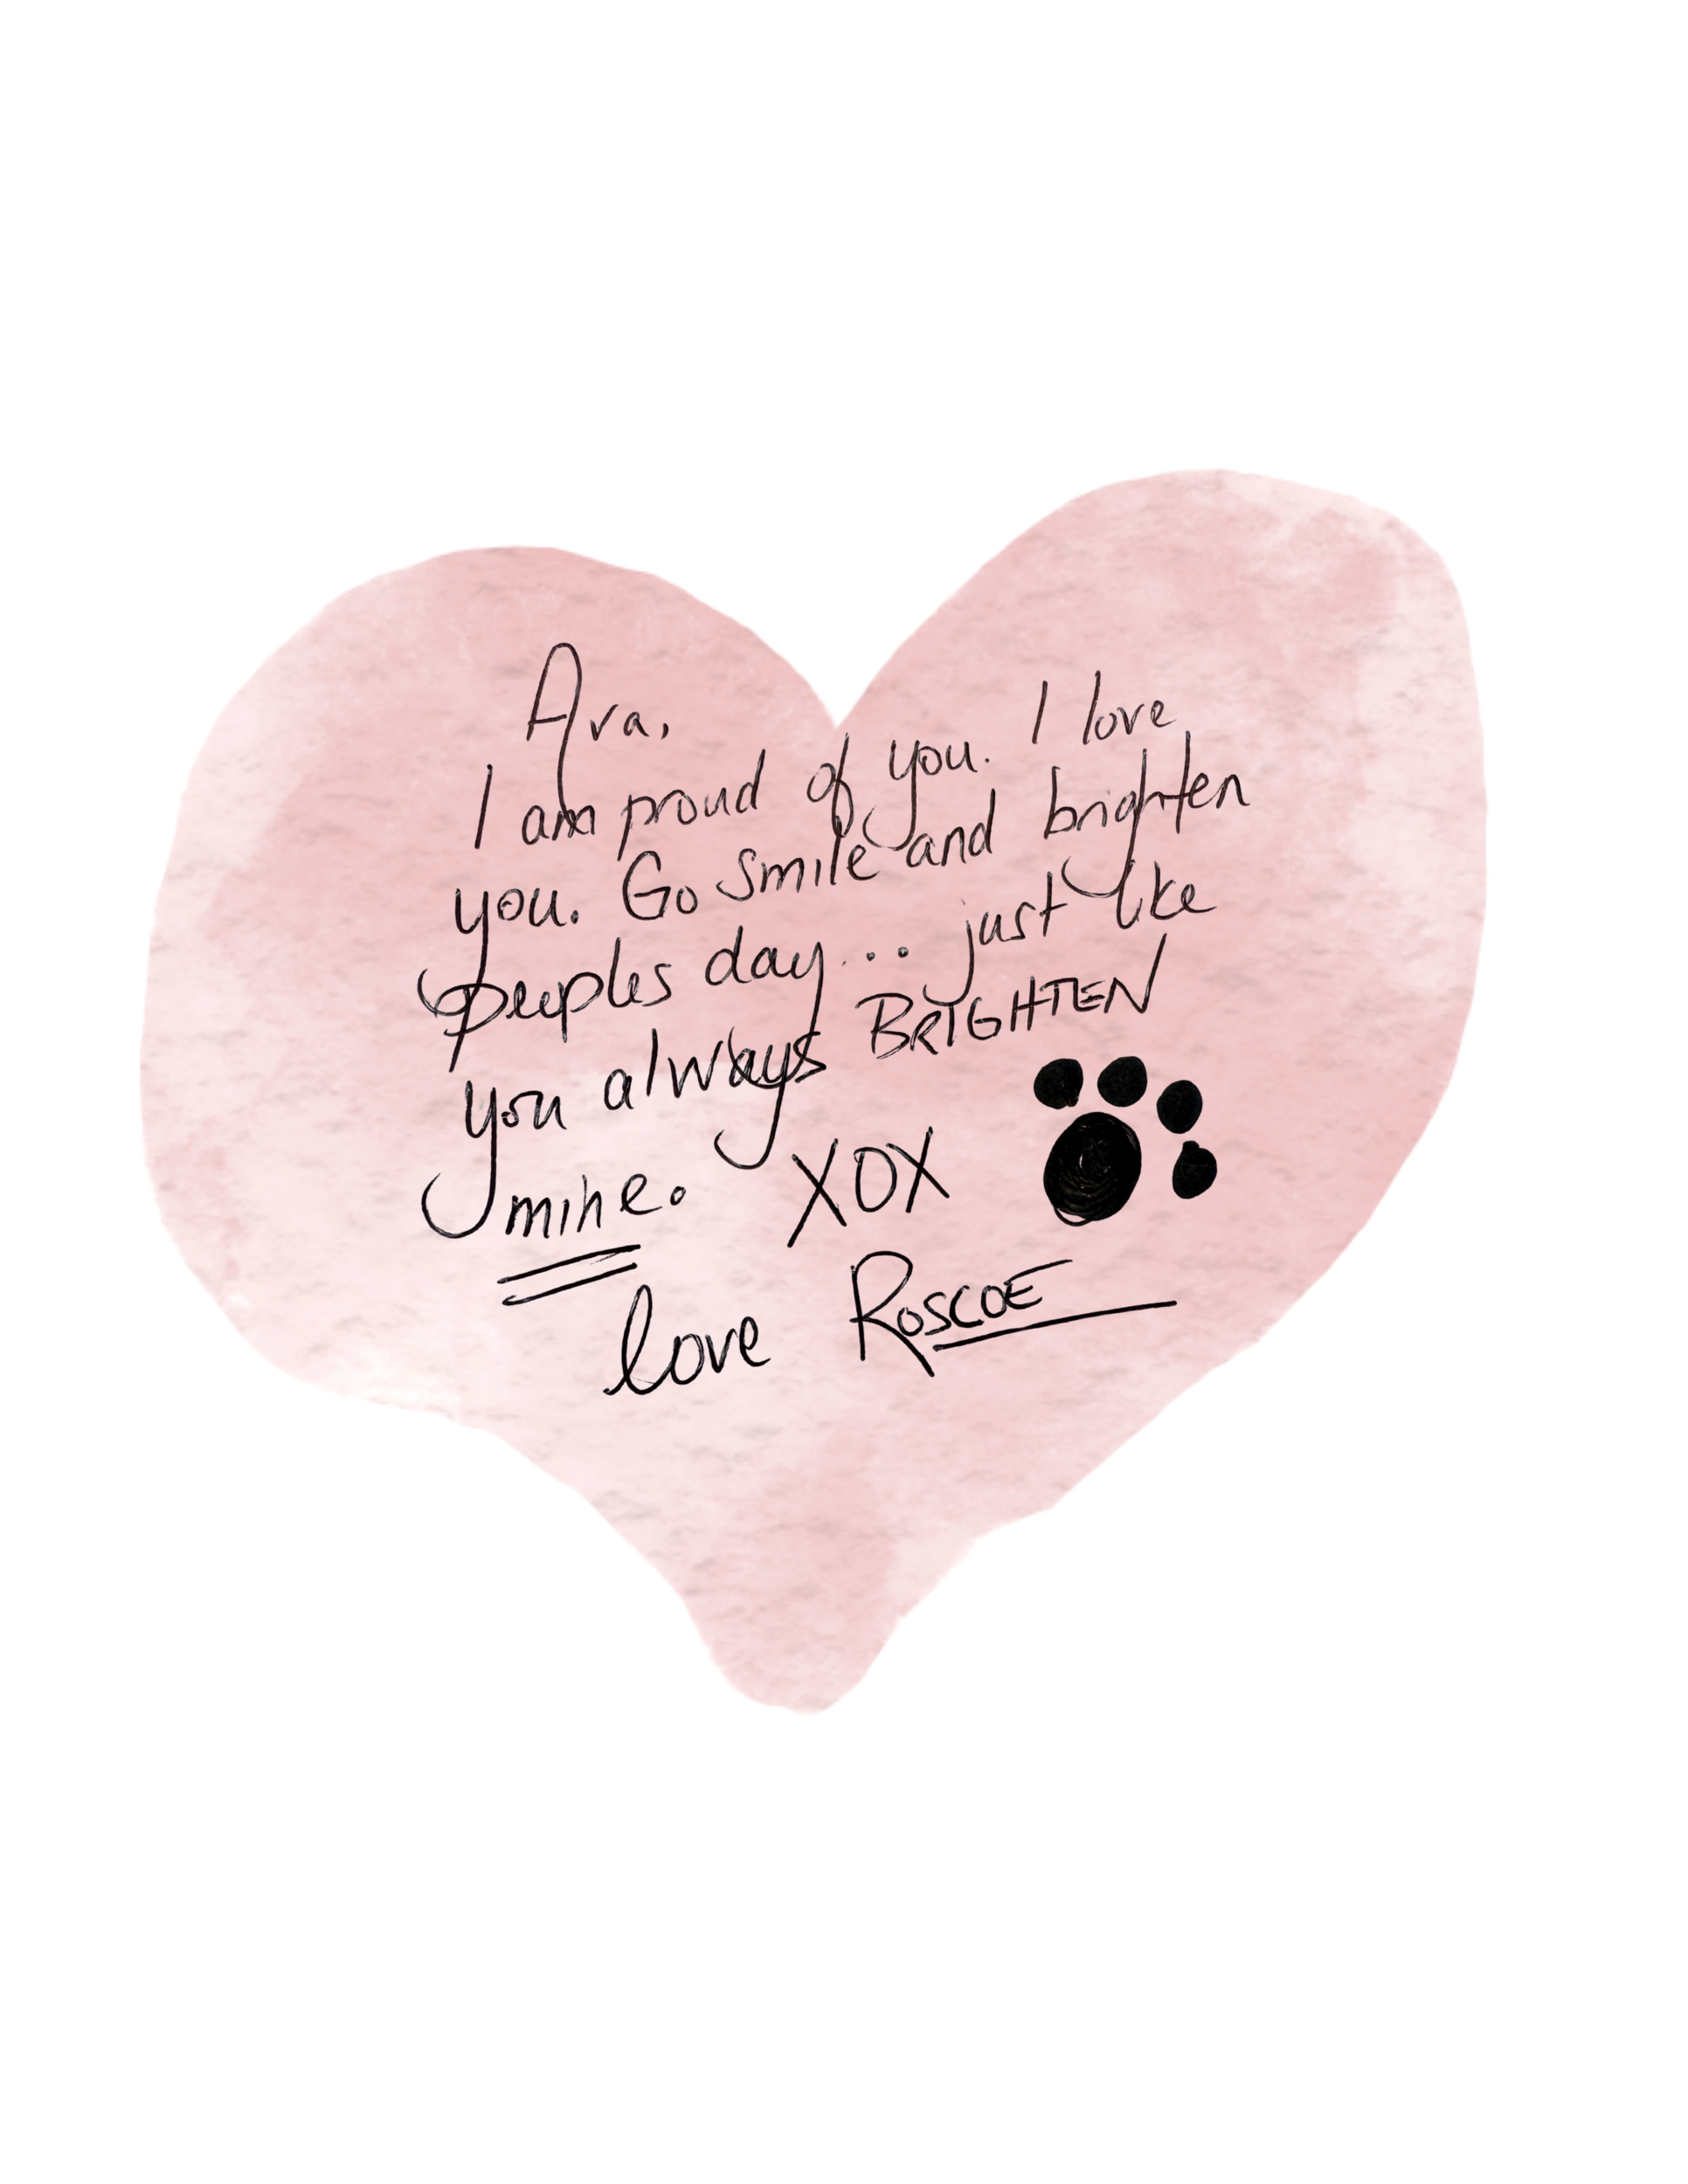 Ava,
I am proud of you. I love
you. Go smile and brighten
peoples day... just like
you always BRIGHTEN
mine. XOX
love ROSCOE